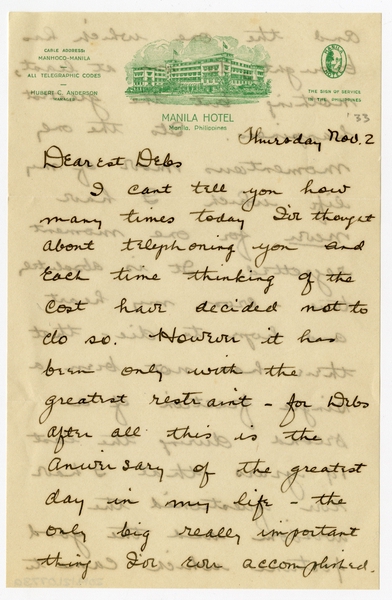 CABLE ADDRESS:
MANHOCO-MANILA
ALL TELEGRAPHIC CODES
HUBERT C. ANDERSON
MANAGER
MANILA HOTEL
Manila, Philippines
MANILA HOTEL
THE SIGN OF SERVICE
IN THE PHILIPPINES
'33
Thursday Nov. 2
Dearest Debs
I cant tell you how
many times today I've thought
about telephoning you and
each time thinking of the
cost have decided not to
do so. However it has
been only with the
greatest restraint - for Debs
after all this is the
aniversary of the greatest
day in my life - the
only big really important
thing I've ever accomplished.